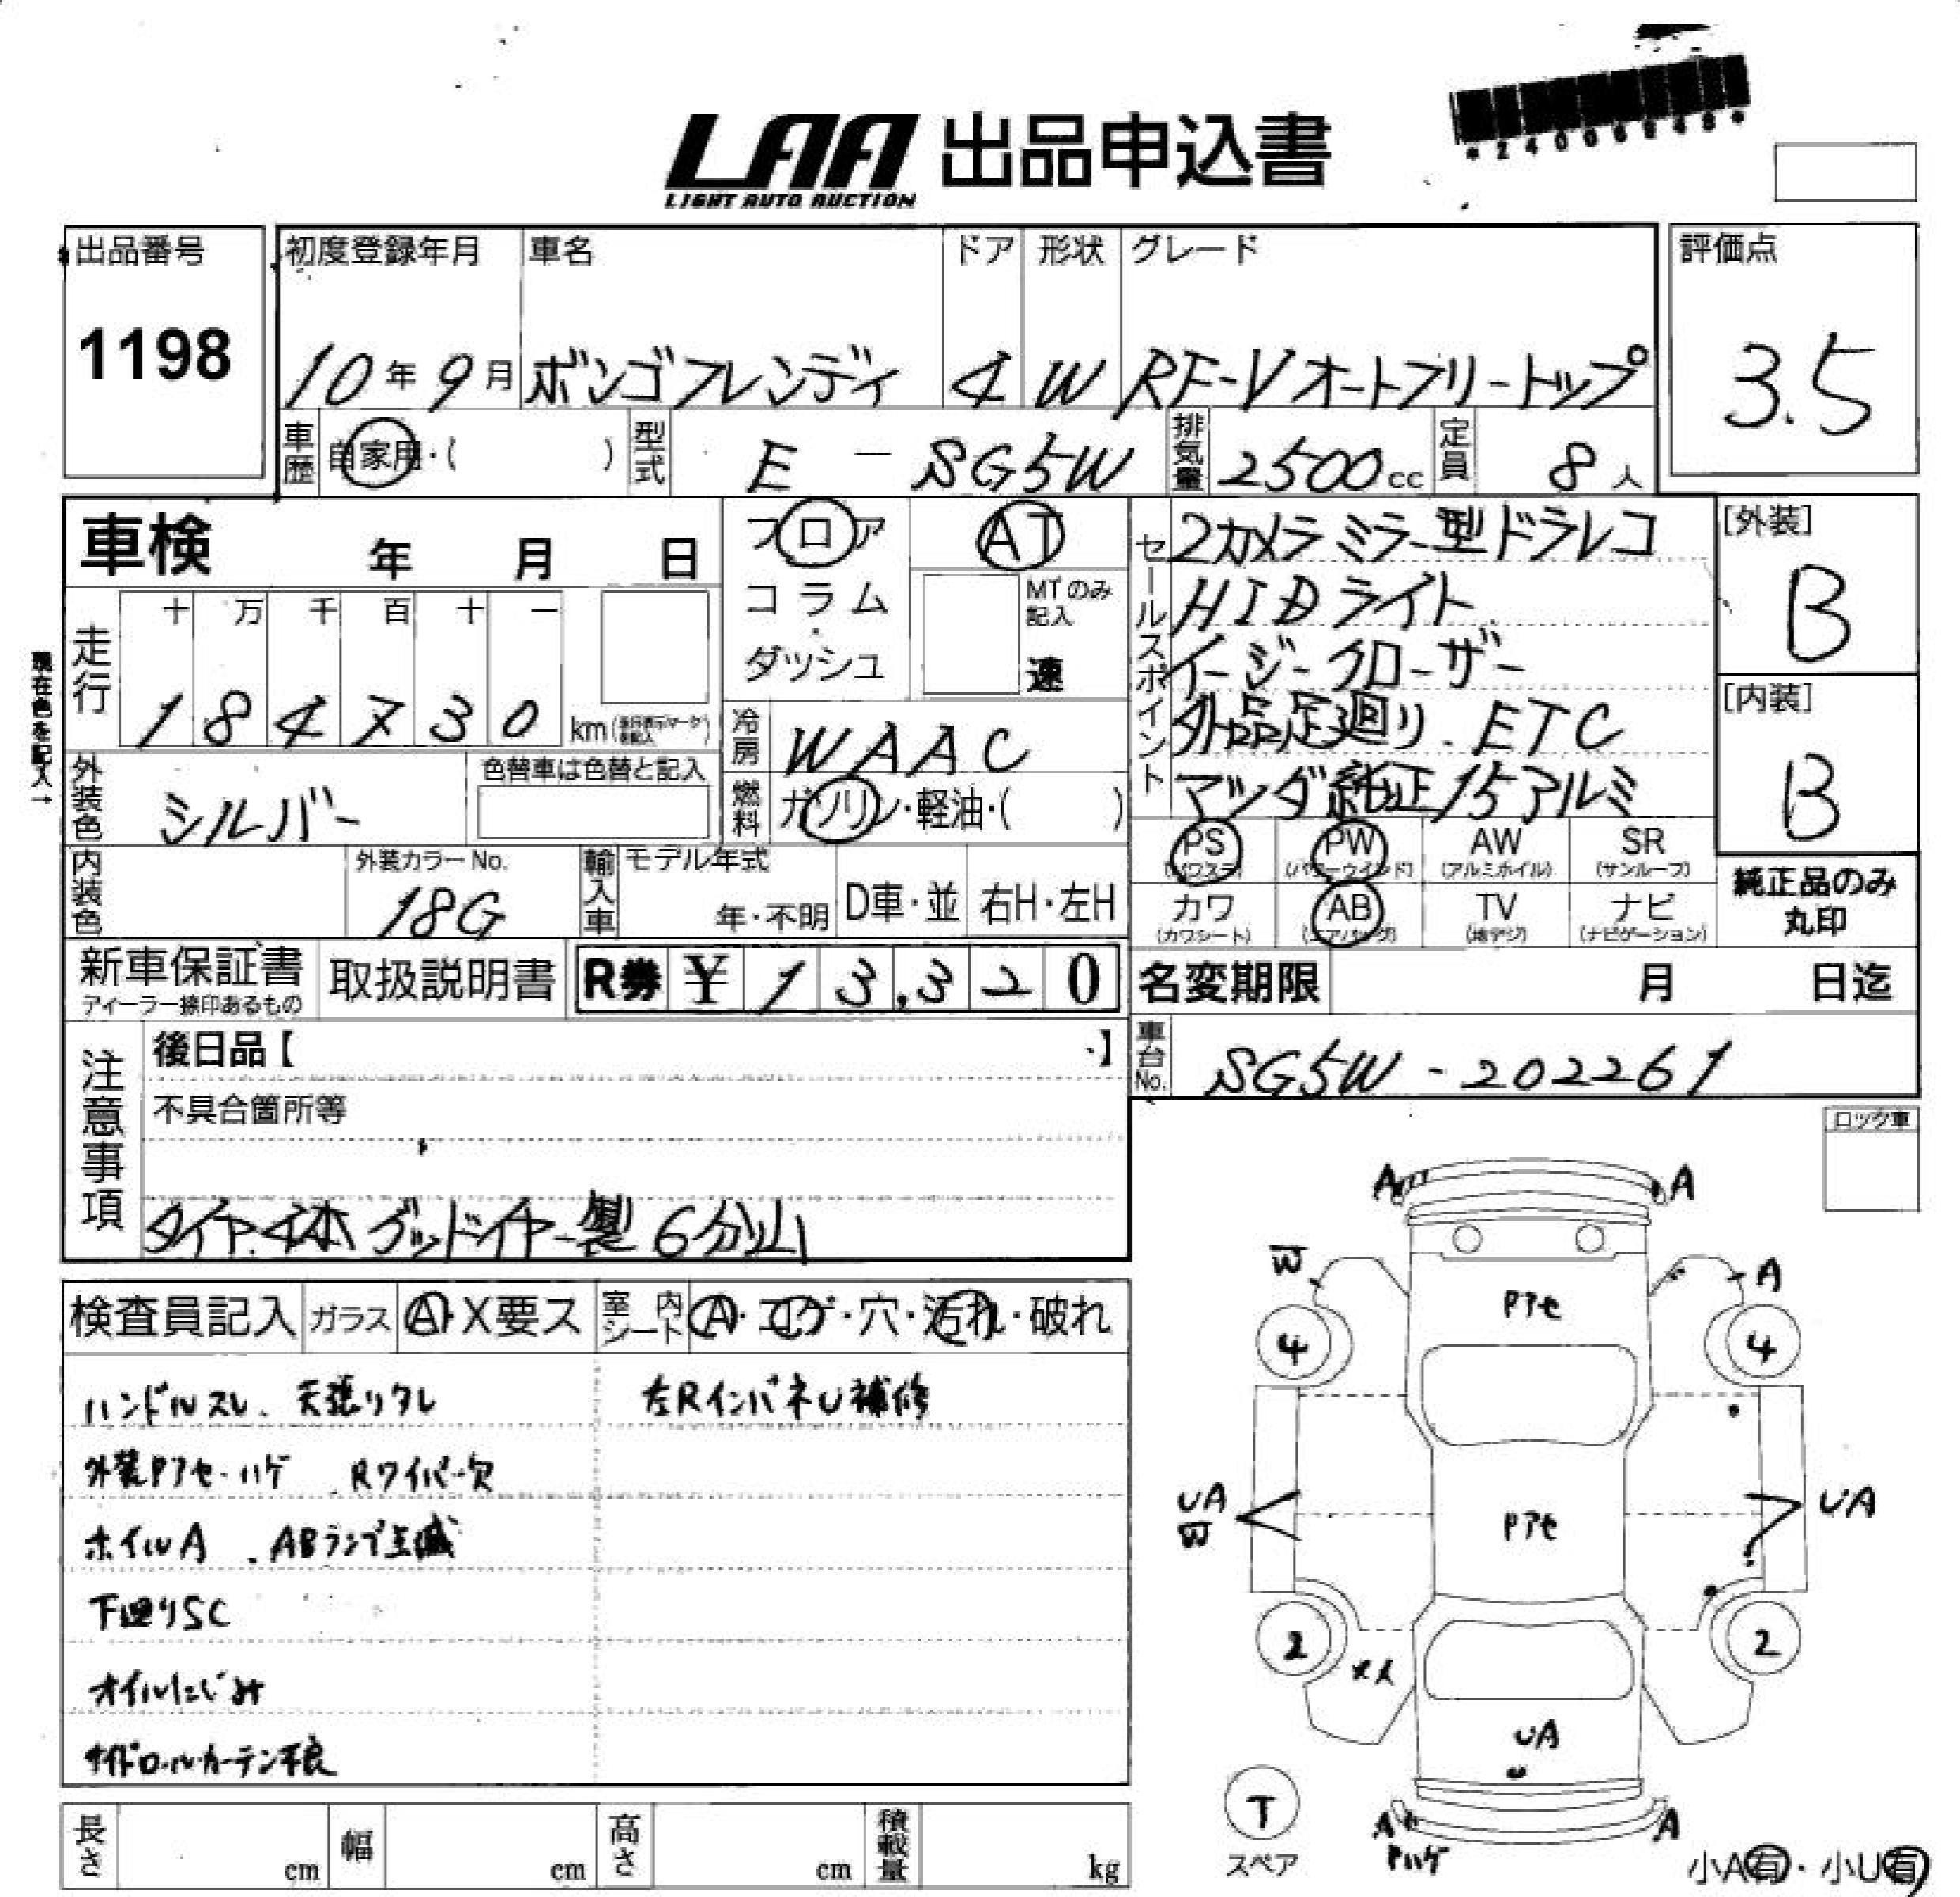 *24006648*
LAA 出品申込書
LIGHT AUTO AUCTION
出品番号
1198
初度登録年月
10年9月
車名
ボンゴフレンディ
ドア
4
形状
W
グレード
RF-Vオートフリートップ
評価点
3.5
車歴
自家用・( )
型式
E - SG5W
排気量
2500cc
定員
8人
車検 年 月 日
走行
十 万 千 百 十 一
1 8 4 7 3 0 km
現在色を記入→
外装色
シルバー
色替車は色替と記入
内装色
外装カラーNo.
18G
フロア
コラム
・
ダッシュ
AT
MTのみ
記入
速
冷房
WAAC
燃料
ガソリン・軽油・( )
輸入車
モデル年式
年・不明
D車・並
右H・左H
セールスポイント
2カメラミラー型ドラレコ
HIDライト
イージークローザー
外品足廻り. ETC
マツダ純正15アルミ
[外装]
B
[内装]
B
PS
(パワステ)
PW
(パワーウインド)
AW
(アルミホイル)
SR
(サンルーフ)
カワ
(カワシート)
AB
(エアバッグ)
TV
(地デジ)
ナビ
(ナビゲーション)
純正品のみ
丸印
新車保証書
ディーラー捺印あるもの
取扱説明書
R券 ¥ 13,320
名変期限 月 日迄
車台No.
SG5W - 202261
注意事項
後日品【 】
不具合箇所等
タイヤ4本グッドイヤー製6分山
ロック車
検査員記入
ガラス
A・X要ス
室内シート
A・コゲ・穴・汚れ・破れ
ハンドルスレ、天張りタレ
左RインパネU補修
外装Pアセ・ハゲ 、Rワイパー欠
ホイルA 、ABランプ点滅
下廻りSC
オイルにじみ
サイドロールカーテン不良
長さ cm
幅 cm
高さ cm
積載量 kg
A A
W A
Pアセ
4 4
UA
W
Pアセ
UA
2 2
UA
U
T
スペア
A A
Pハゲ
小A有・小U有